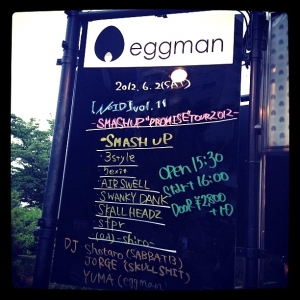 eggman
2012. 6.2(SAT)
【VOID】vol.11
-SMASHUP "PROMISE" TOUR 2012-
SMASH UP
3style
7exit
AIR SWELL
SWANKY DANK
SKALL HEADZ
stpr
(O.A) -shiro-
OPEN 15:30
Start 16:00
DooR ¥2800
DJ Shotaro (SABBAT13)
JORGE (SKULLSHIT)
YUMA (eggman)